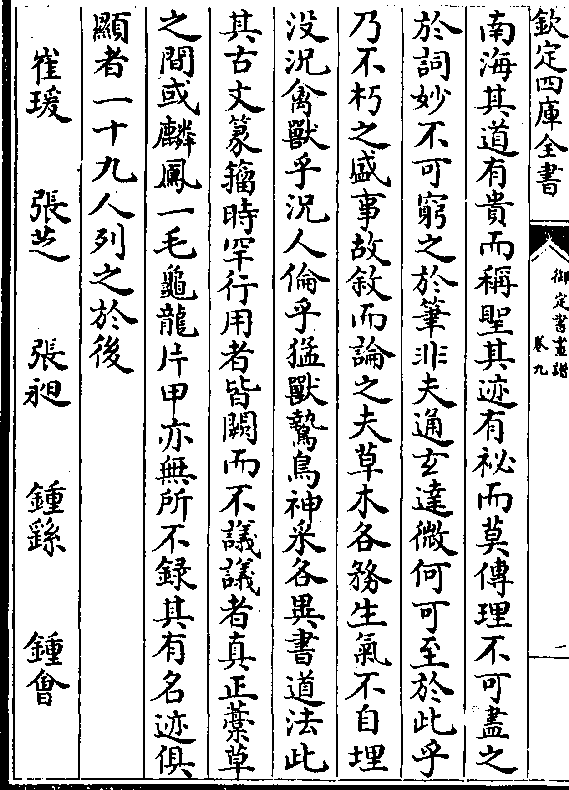 欽定四庫全書
御定書畫譜
卷九
二
南海其道有貴而稱聖其迹有祕而莫傳理不可盡之
於詞妙不可窮之於筆非夫通玄達微何可至於此乎
乃不朽之盛事故敘而論之夫草木各務生氣不自埋
没況禽獸乎況人倫乎猛獸鷙鳥神采各異書道法此
其古文篆籀時罕行用者皆闕而不議議者真正藁草
之間或麟鳳一毛龜龍片甲亦無所不録其有名迹俱
顯者一十九人列之於後
崔瑗 張芝 張昶 鍾繇 鍾會